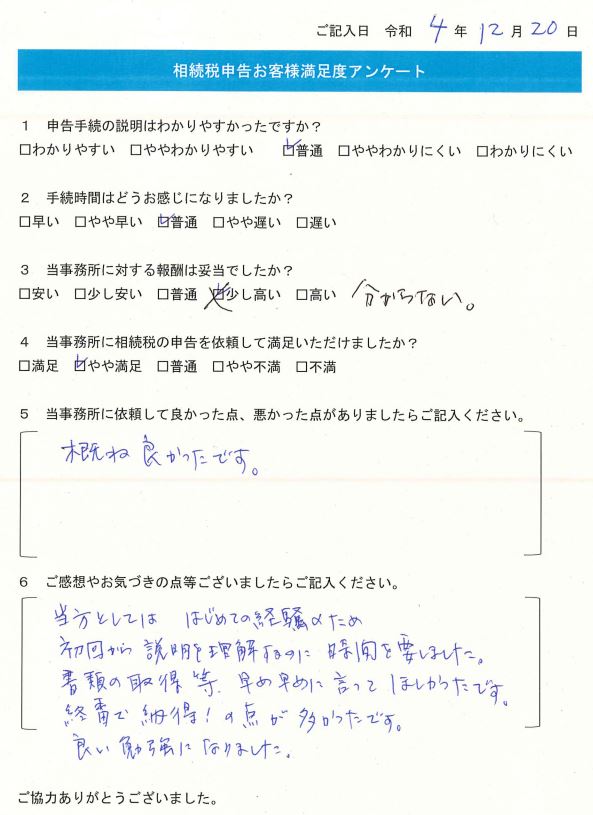 ご記入日 令和 4 年 12 月 20 日
相続税申告お客様満足度アンケート
1 申告手続の説明はわかりやすかったですか？
□わかりやすい □ややわかりやすい ☑普通 □ややわかりにくい □わかりにくい
2 手続時間はどうお感じになりましたか？
□早い □やや早い ☑普通 □やや遅い □遅い
3 当事務所に対する報酬は妥当でしたか？
□安い □少し安い □普通 ☑少し高い □高い 分からない。
4 当事務所に相続税の申告を依頼して満足いただけましたか？
□満足 ☑やや満足 □普通 □やや不満 □不満
5 当事務所に依頼して良かった点、悪かった点がありましたらご記入ください。
概ね良かったです。
6 ご感想やお気づきの点等ございましたらご記入ください。
当方としては はじめての経験のため
初回から説明を理解するのに時間を要しました。
書類の取得等、早め早めに言ってほしかったです。
終番で納得！の点が多かったです。
良い勉強になりました。
ご協力ありがとうございました。